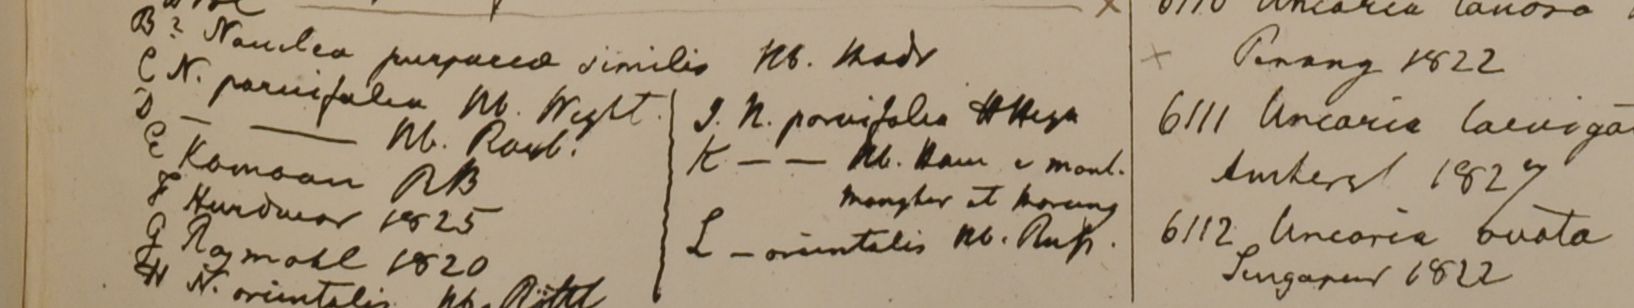 B? Nauclea purpurea similis Hb. Madr
C N. parvifolia Hb. Wight.
D — — Hb. Roxb.
E Kamaon RB
F Hurdwar 1825
G Rajmahl 1820
H N. orientalis Hb.
J. N. parvifolia H Heyn
K — — Hb. Ham e mont.
Mongher et Morung
L — orientalis Hb. Russ.
6110 Uncaria lanosa
Penang 1822
6111 Uncaria laeviga
Amherst 1827
6112 Uncaria ovata
Singapur 1822